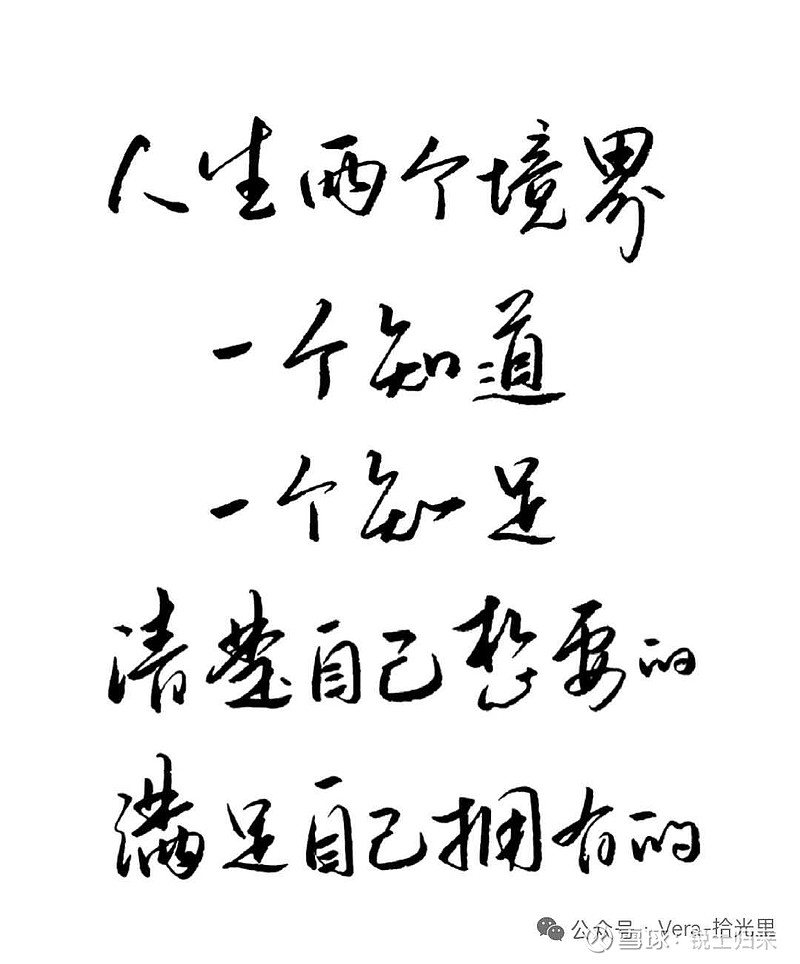 人生两个境界
一个知道
一个知足
清楚自己想要的
满足自己拥有的
公众号·Vera-拾光里
雪球：锐士归来